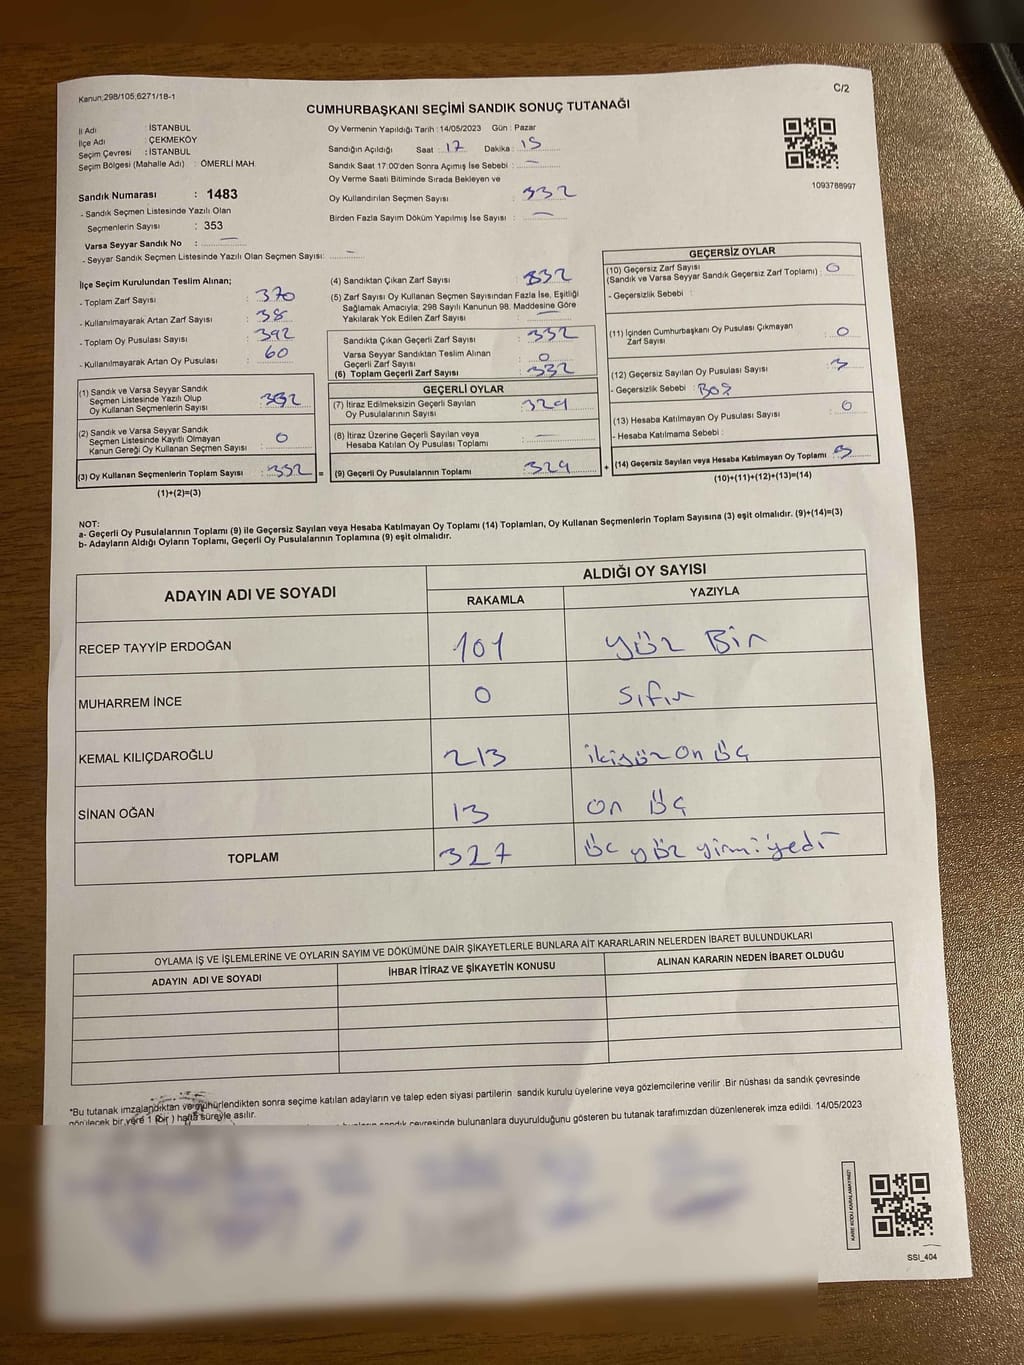 Kanun;298/105,6271/18-1
C/2
CUMHURBAŞKANI SEÇİMİ SANDIK SONUÇ TUTANAĞI
İl Adı : İSTANBUL
İlçe Adı : ÇEKMEKÖY
Seçim Çevresi : İSTANBUL
Seçim Bölgesi (Mahalle Adı) : ÖMERLİ MAH.
Sandık Numarası : 1483
- Sandık Seçmen Listesinde Yazılı Olan
Seçmenlerin Sayısı : 353
Varsa Seyyar Sandık No : —
- Seyyar Sandık Seçmen Listesinde Yazılı Olan Seçmen Sayısı: —
Oy Vermenin Yapıldığı Tarih :14/05/2023 Gün : Pazar
Sandığın Açıldığı Saat : 17 Dakika : 15
Sandık Saat 17:00'den Sonra Açımış İse Sebebi : —
Oy Verme Saati Bitiminde Sırada Bekleyen ve
Oy Kullandırılan Seçmen Sayısı : 332
Birden Fazla Sayım Döküm Yapılmış İse Sayısı : —
1093788997
İlçe Seçim Kurulundan Teslim Alınan;
- Toplam Zarf Sayısı : 370
- Kullanılmayarak Artan Zarf Sayısı : 38
- Toplam Oy Pusulası Sayısı : 392
- Kullanılmayarak Artan Oy Pusulası : 60
(1) Sandık ve Varsa Seyyar Sandık
Seçmen Listesinde Yazılı Olup
Oy Kullanan Seçmenlerin Sayısı : 332
(2) Sandık ve Varsa Seyyar Sandık
Seçmen Listesinde Kayıtlı Olmayan
Kanun Gereği Oy Kullanan Seçmen Sayısı : 0
(3) Oy Kullanan Seçmenlerin Toplam Sayısı : 332 =
(1)+(2)=(3)
(4) Sandıktan Çıkan Zarf Sayısı : 332
(5) Zarf Sayısı Oy Kullanan Seçmen Sayısından Fazla İse, Eşitliği
Sağlamak Amacıyla; 298 Sayılı Kanunun 98. Maddesine Göre
Yakılarak Yok Edilen Zarf Sayısı : —
Sandıkta Çıkan Geçerli Zarf Sayısı : 332
Varsa Seyyar Sandıktan Teslim Alınan
Geçerli Zarf Sayısı : 0
(6) Toplam Geçerli Zarf Sayısı : 332
GEÇERLİ OYLAR
(7) İtiraz Edilmeksizin Geçerli Sayılan
Oy Pusulalarının Sayısı : 329
(8) İtiraz Üzerine Geçerli Sayılan veya
Hesaba Katılan Oy Pusulası Toplamı : —
(9) Geçerli Oy Pusulalarının Toplamı : 329 +
GEÇERSİZ OYLAR
(10) Geçersiz Zarf Sayısı
(Sandık ve Varsa Seyyar Sandık Geçersiz Zarf Toplamı) : 0
- Geçersizlik Sebebi :
(11) İçinden Cumhurbaşkanı Oy Pusulası Çıkmayan
Zarf Sayısı : 0
(12) Geçersiz Sayılan Oy Pusulası Sayısı : 3
- Geçersizlik Sebebi : BOŞ
(13) Hesaba Katılmayan Oy Pusulası Sayısı : 0
- Hesaba Katılmama Sebebi :
(14) Geçersiz Sayılan veya Hesaba Katılmayan Oy Toplamı : 3
(10)+(11)+(12)+(13)=(14)
NOT:
a- Geçerli Oy Pusulalarının Toplamı (9) ile Geçersiz Sayılan veya Hesaba Katılmayan Oy Toplamı (14) Toplamları, Oy Kullanan Seçmenlerin Toplam Sayısına (3) eşit olmalıdır. (9)+(14)=(3)
b- Adayların Aldığı Oyların Toplamı, Geçerli Oy Pusulalarının Toplamına (9) eşit olmalıdır.
ADAYIN ADI VE SOYADI ALDIĞI OY SAYISI
RAKAMLA YAZIYLA
RECEP TAYYİP ERDOĞAN 101 yüz Bir
MUHARREM İNCE 0 sıfır
KEMAL KILIÇDAROĞLU 213 ikiyüz on üç
SİNAN OĞAN 13 on üç
TOPLAM 327 üç yüz yirmi yedi
OYLAMA İŞ VE İŞLEMLERİNE VE OYLARIN SAYIM VE DÖKÜMÜNE DAİR ŞİKAYETLERLE BUNLARA AİT KARARLARIN NELERDEN İBARET BULUNDUKLARI
ADAYIN ADI VE SOYADI İHBAR İTİRAZ VE ŞİKAYETİN KONUSU ALINAN KARARIN NEDEN İBARET OLDUĞU
*Bu tutanak imzalandıktan ve mühürlendikten sonra seçime katılan adayların ve talep eden siyasi partilerin sandık kurulu üyelerine veya gözlemcilerine verilir .Bir nüshası da sandık çevresinde
görülecek bir yere 1 (bir ) hafta süreyle asılır.
sandık çevresinde bulunanlara duyurulduğunu gösteren bu tutanak tarafımızdan düzenlenerek imza edildi. 14/05/2023
KARE KODU KARALAMAYINIZ!
SSI_404